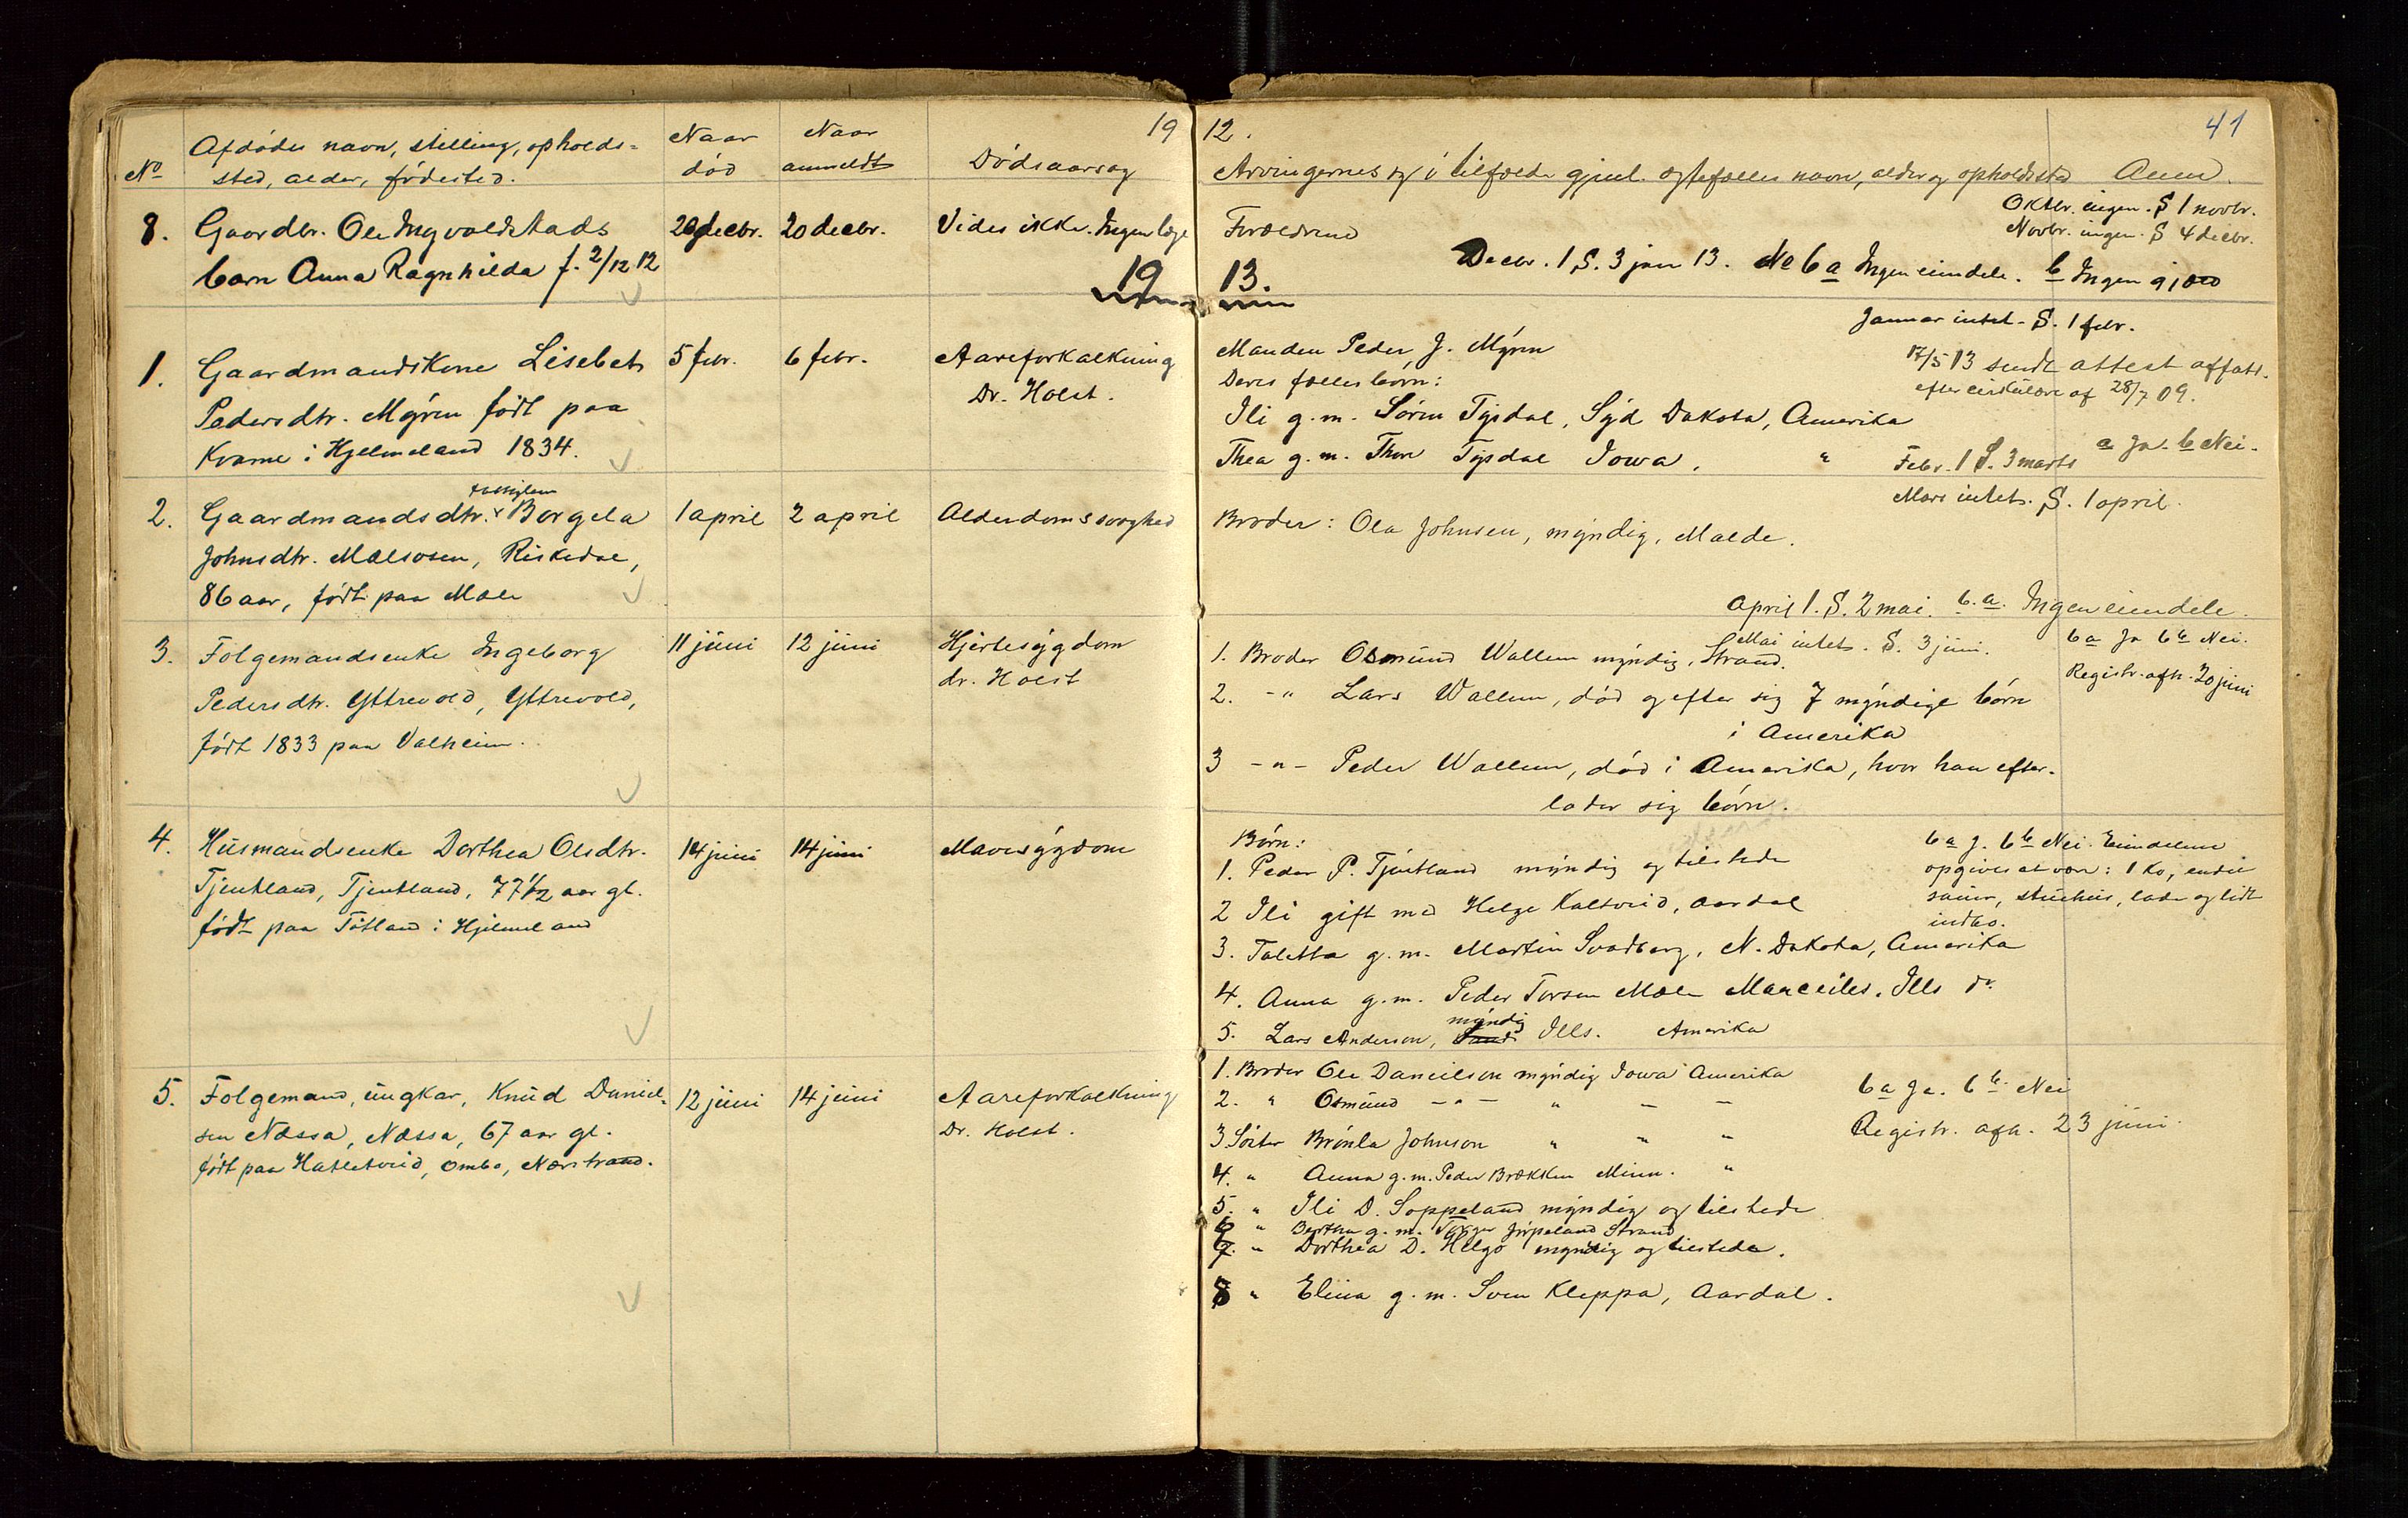 19 12. 41
No Afdødes navn, stilling, opholds=
sted, alder, fødested.
Naar
død
Naar
anmeldt
Dødsaarsag
Arvingernes og i tilfælde gjenl. ægtefælles navn, alder og opholdssted Anm.
Oktbr. ingen. S 1 novbr.
Novbr. ingen. S 4 decbr.
8. Gaardbr. Ole Ingvaldstads
barn Anna Ragnhilda f. 2/12 12
20 decbr. 20 decbr. Vides ikke. Ingen læge
Forældrene
Decbr. 1 S. 3 jan 13. No 6 a Ingen eiendele. b Ingen gjæld
19 13.
Januar intet - S. 1 febr.
1. Gaardmandskone Lisebet
Pedersdtr. Mÿren født paa
Kvame i Hjelmeland 1834.
5 febr. 6 febr. Aareforkalkning
Dr. Holst.
Manden Peder J. Mÿren
Deres fælles børn:
Ili g.m. Søren Tÿsdal, Sÿd Dakota, Amerika
Thea g.m. Thore Tÿsdal Iowa, "
17/5 13 sendt attest affatt.
efter cirkulære af 28/7 09.
a Ja. b Nei.
Febr. 1 S. 3 marts
Mars intet. S. 1 april.
2. Gaardmandsdtr. Borgela
Johnsdtr. Mælsosen, Riskedal,
86 aar, født paa Mæle
1 april 2 april Alderdomssvaghed
Broder: Ola Johnsen, mÿndig, Malde.
april 1. S. 2 mai. 6. a. Ingen eiendele.
Mai intet. S. 3 juni.
3. Folgemandsenke Ingeborg
Pedersdtr. Yttrevold, Yttrevold,
født 1833 paa Valheim.
11 juni 12 juni Hjertesÿgdom
dr. Holst
1. Broder Osmund Wallem mÿndig, Strand.
2. -"- Lars Wallem, død og efter sig 7 mÿndige børn
i Amerika
3 -"- Peder Wallem, død i Amerika, hvor han efter-
lader sig børn.
6a Ja 6b Nei.
Registr. afh. 20 juni
4. Husmandsenke Dorthea Olsdtr.
Tjentland, Tjentland, 77 1/2 aar gl.
født paa Tøtland i Hjelmeland
14 juni 14 juni Mavesÿgdom
Børn:
1. Peder P. Tjentland mÿndig og tilstede
2 Ili gift med Helge Kaltveid, Aardal
3. Taletta g.m. Martin Svadberg, N. Dakota, Amerika
4. Anna g.m. Peder Torsen Mæle Marceiles, Ills do
5. Lars Anderson, mÿndig Ills. Amerika
6a J. 6b Nei. Eiendelene
opgives at være: 1 ko, endel
sauer, stuehus, lade og lidt
indbo.
5. Folgemand, ungkar, Knud Daniel=
sen Næssa, Næssa, 67 aar gl.
født paa Hatletveid, Ombo, Nærstrand.
12 juni 14 juni Aareforkalkning
Dr. Holst.
1. Broder Ole Danielson mÿndig Iowa Amerika
2. " Osmund -"- " - -
3 Søster Brønla Johnson " " "
4. " Anna g.m. Peder Brækken Minn. "
5. " Ili D. Soppeland mÿndig og tilstede
6 " Bertha g.m. Torger Jørpeland Strand
7. " Dorthea D. Helgø mÿndig og tilstede.
8 " Elina g.m. Sven Kleppa, Aardal.
6a Ja. 6b. Nei
Registr. afh. 23 juni.